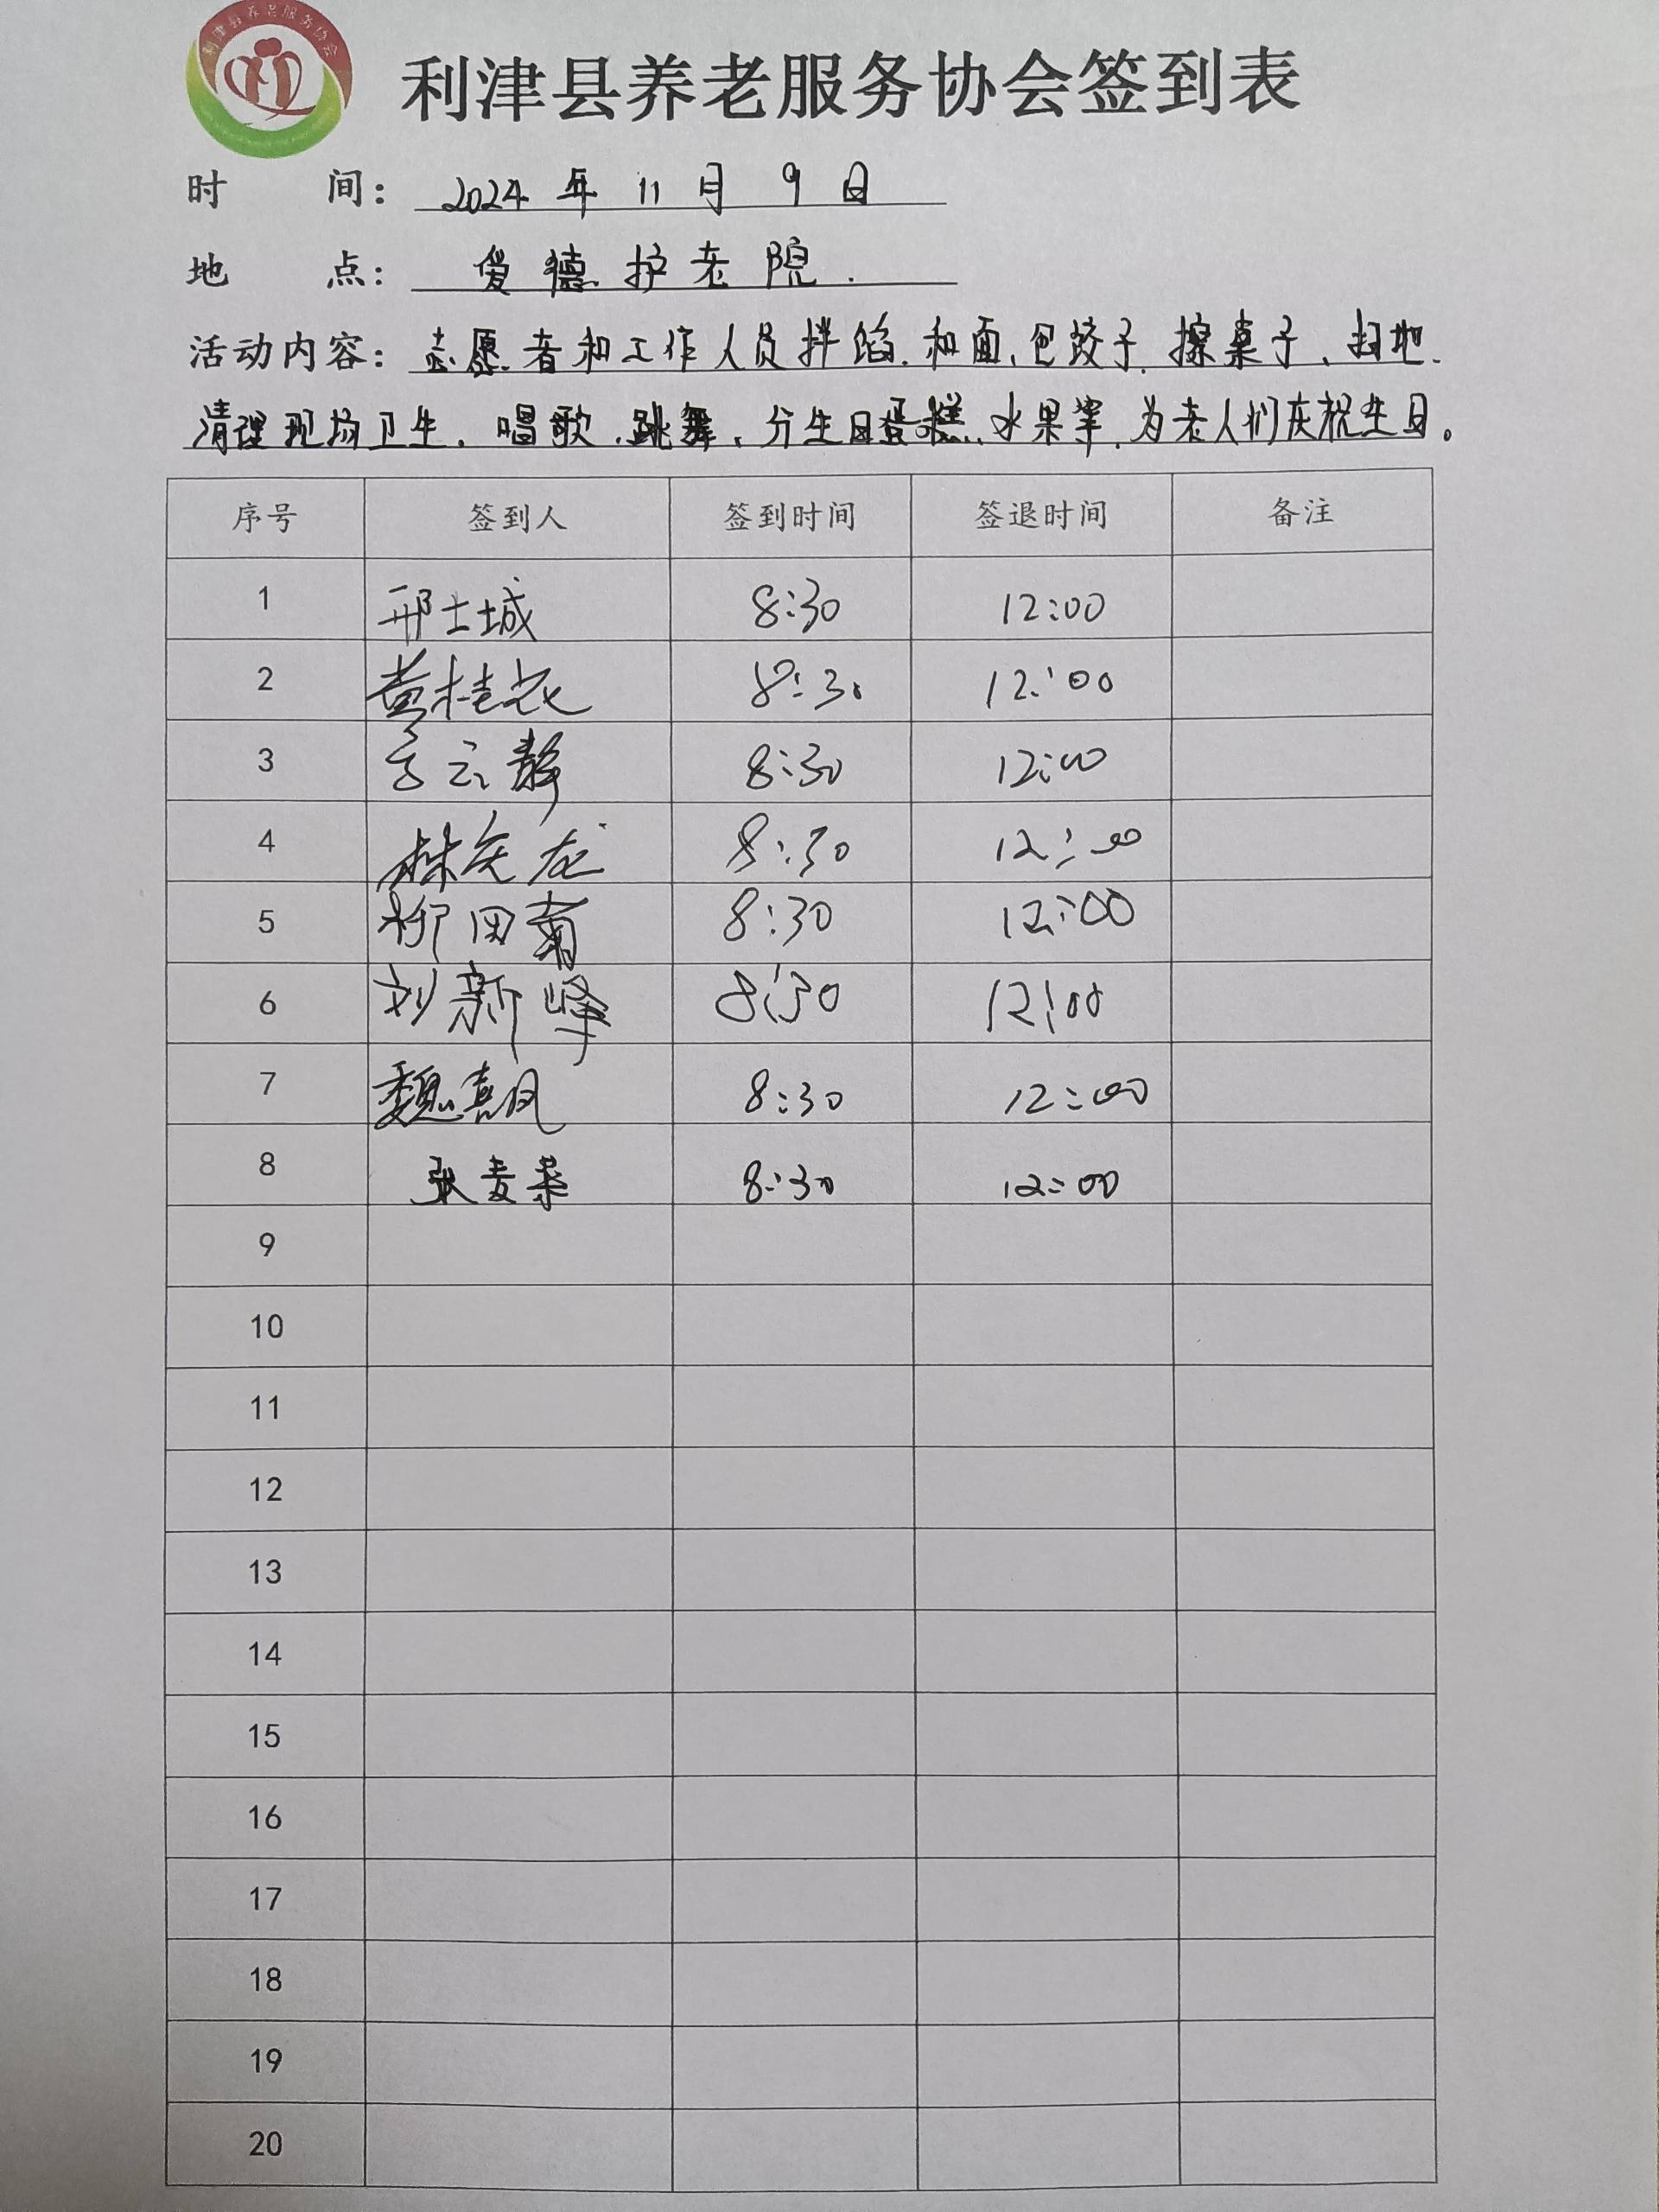 利津县养老服务协会
利津县养老服务协会签到表
时 间：2024 年 11 月 9 日
地 点：爱德护老院.
活动内容：志愿者和工作人员拌馅.和面、包饺子.擦桌子、扫地.
清理现场卫生、唱歌、跳舞、分生日蛋糕、水果等,为老人们庆祝生日。
序号 签到人 签到时间 签退时间 备注
1 邢士城 8:30 12:00
2 黄桂花 8:30 12:00
3 云静 8:30 12:00
4 林 8:30 12:00
5 柳田菊 8:30 12:00
6 刘新峰 8:30 12:00
7 魏喜凤 8:30 12:00
8 张麦荣 8:30 12:00
9
10
11
12
13
14
15
16
17
18
19
20